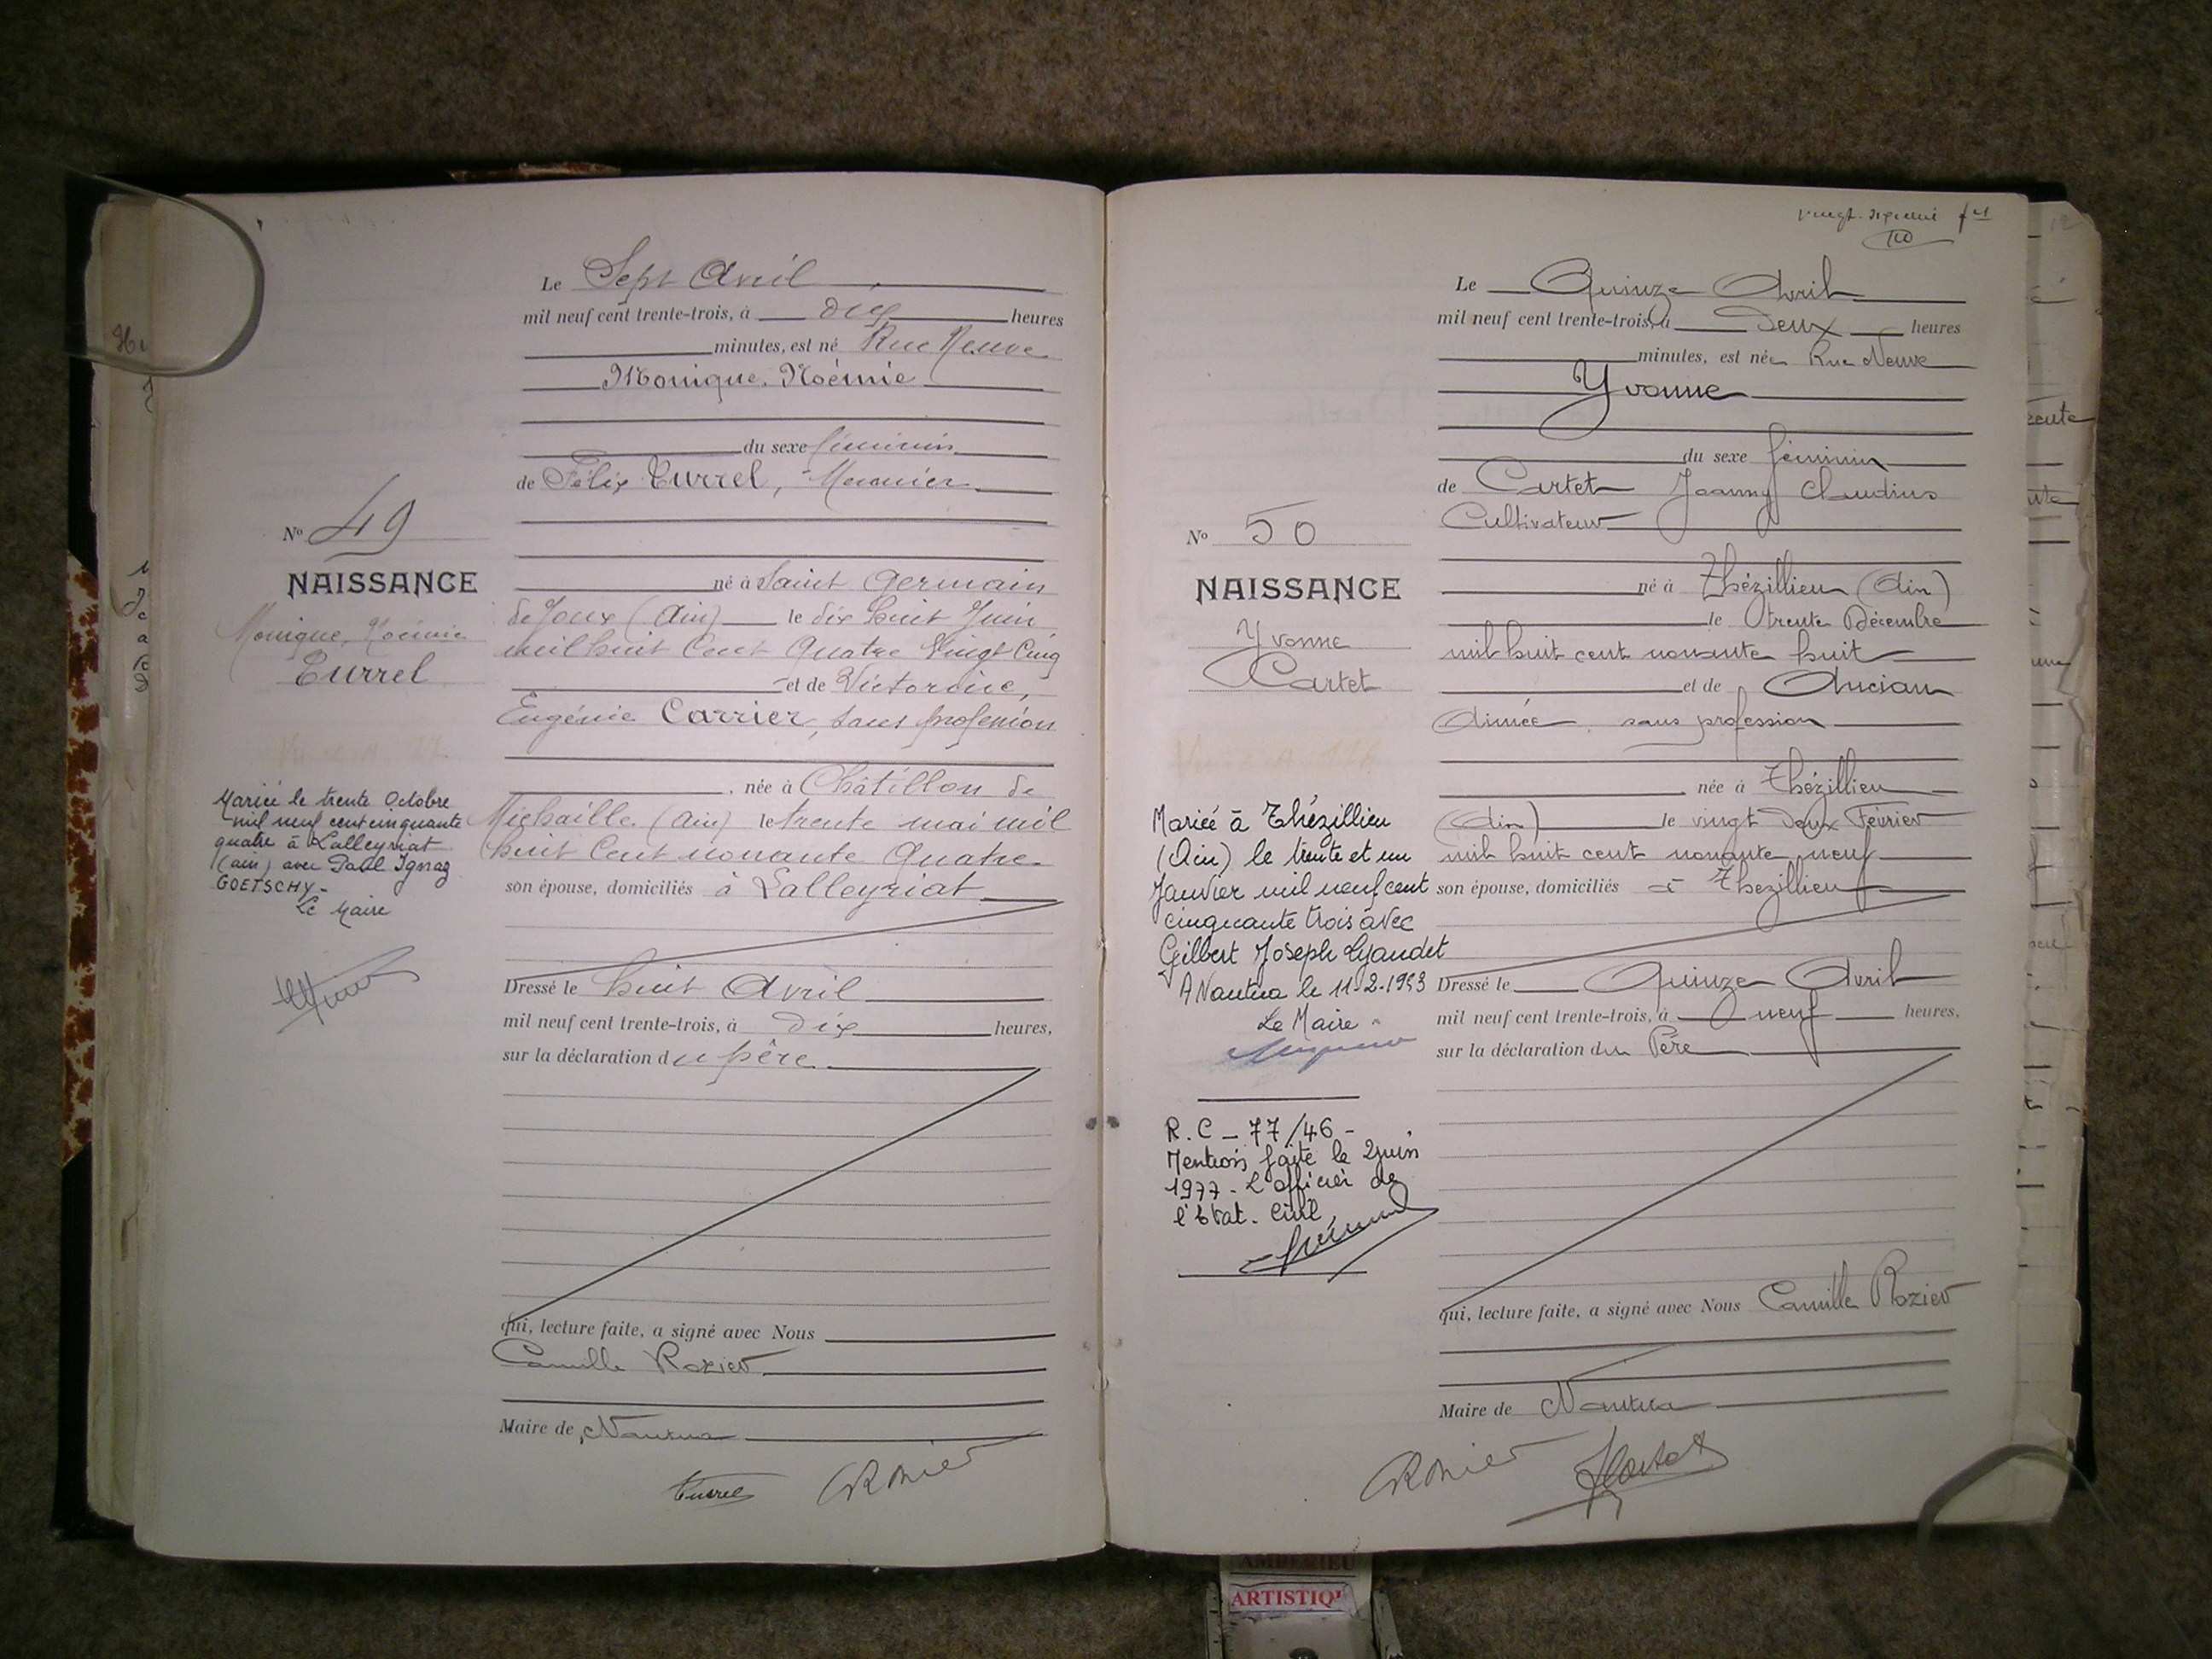 Le Sept Avril
mil neuf cent trente-trois, à dix heures
minutes, est né Rue Neuve
Monique, Noémie
du sexe féminin
de Félix Turrel, Menuisier
né à Saint Germain
de Joux (Ain) le dix huit Juin
mil huit Cent Quatre Vingt Cinq
et de Victorine,
Eugénie Carrier, sans profession
née à Châtillon de
Michaille (Ain) le trente mai mil
huit Cent nonante Quatre
son épouse, domiciliés à Lalleyriat
Dressé le huit Avril
mil neuf cent trente-trois, à dix heures,
sur la déclaration du père
qui, lecture faite, a signé avec Nous
Camille Rozier
Maire de Nantua
Turrel
No 49
NAISSANCE
Monique, Noémie
Turrel
Mariée le trente Octobre
mil neuf cent cinquante
quatre à Lalleyriat
(ain) avec Paul Ignaz
GOETSCHY-
Le Maire
Le Quinze Avril
mil neuf cent trente-trois, à Deux heures
minutes, est née Rue Neuve
Yvonne
du sexe féminin
de Cartet Joanny Claudius
Cultivateur
né à Thézillieu (Ain)
le trente Décembre
mil huit cent nonante huit
et de Ancian
Aimée, sans profession
née à Thézillieu
(Ain) le vingt Deux Février
mil huit cent nonante neuf
son épouse, domiciliés à Thezillieu
Dressé le Quinze Avril
mil neuf cent trente-trois, à neuf heures.
sur la déclaration du Père
qui, lecture faite, a signé avec Nous Camille Rozier
Maire de Nantua
No 50
NAISSANCE
Yvonne
Cartet
Mariée à Thézillieu
(Ain) le trente et un
Janvier mil neuf cent
cinquante trois avec
Gilbert Joseph Lyaudet
A Nantua le 11-2-1953
Le Maire
R.C - 77/46 -
Mention faite le 2 juin
1977 - L'officier de
l'Etat. Civil
ARTISTIQ